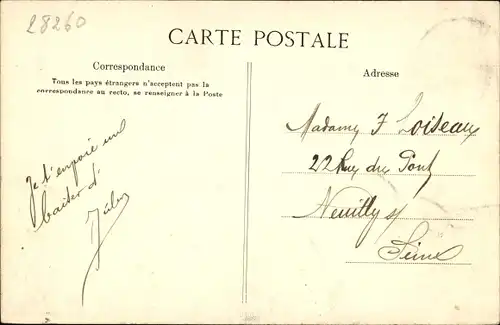 28260
CARTE POSTALE
Correspondance
Tous les pays étrangers n'acceptent pas la
correspondance au recto, se renseigner à la Poste
Je t'envoie un
baiser d'
Adresse
Madame F Loiseau
22 Rue du Pont
Neuilly s/
Seine